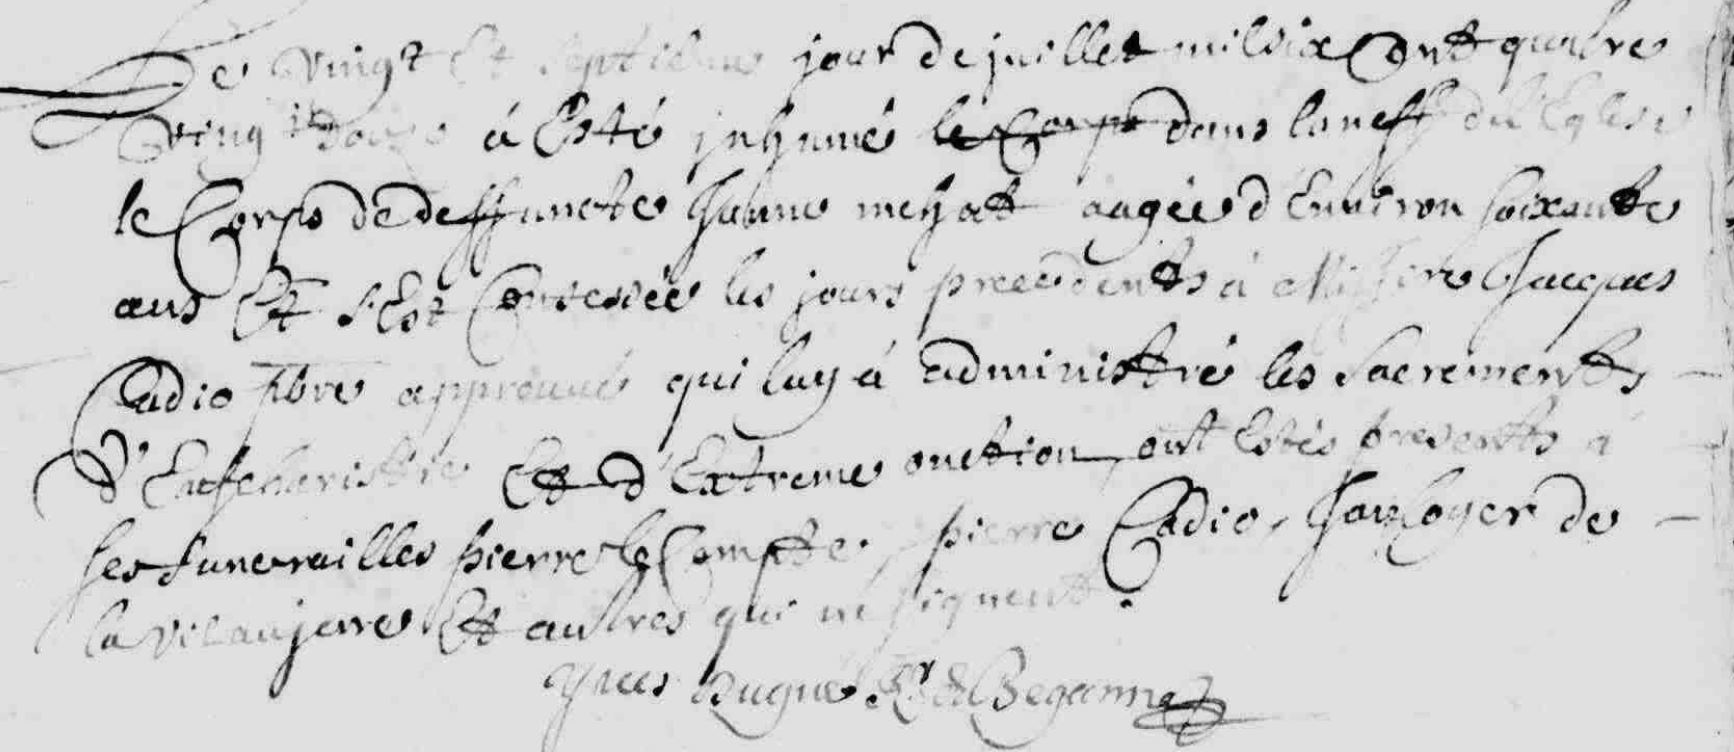 Le vingt Et septiesme jour de juillet mil six Cent quatre
vingt douze á Esté inhumé le Corps dans la neff de l'Eglise
le Corps de deffuncte Janne mehat aagée d'Environ soixante
ans Et s'Est Confessée les jours precedents á Missire Jacques
Cadio pbre approuué qui luy á administré les sacrements
d'Eucharistie Et d'Extreme onction, ont Estés presents a
ses funerailles pierre le Compte, pierre Cadio, Jan loyer de
la vilaujere Et autres qui ne signent.
Yues Bugué Rr de Beganne